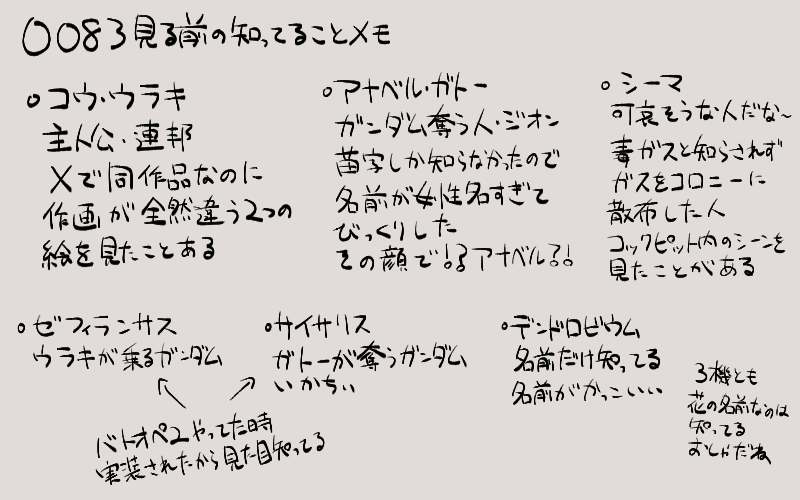 0083見る前の知ってることメモ
○コウ・ウラキ
主人公・連邦
Xで同作品なのに
作画が全然違う2つの
絵を見たことある
○アナベル・ガトー
ガンダム奪う人・ジオン
苗字しか知らなかったので
名前が女性名すぎて
びっくりした
その顔で!?アナベル?!
○シーマ
可哀そうな人だな〜
毒ガスと知らされず
ガスをコロニーに
散布した人
コックピット内のシーンを
見たことがある
○ゼフィランサス
ウラキが乗るガンダム
○サイサリス
ガトーが奪うガンダム
いかちぃ
バトオペ2やってた時
実装されたから見た目知ってる
○デンドロビウム
名前だけ知ってる
名前がかっこいい
3機とも
花の名前なのは
知ってる
おしゃだね